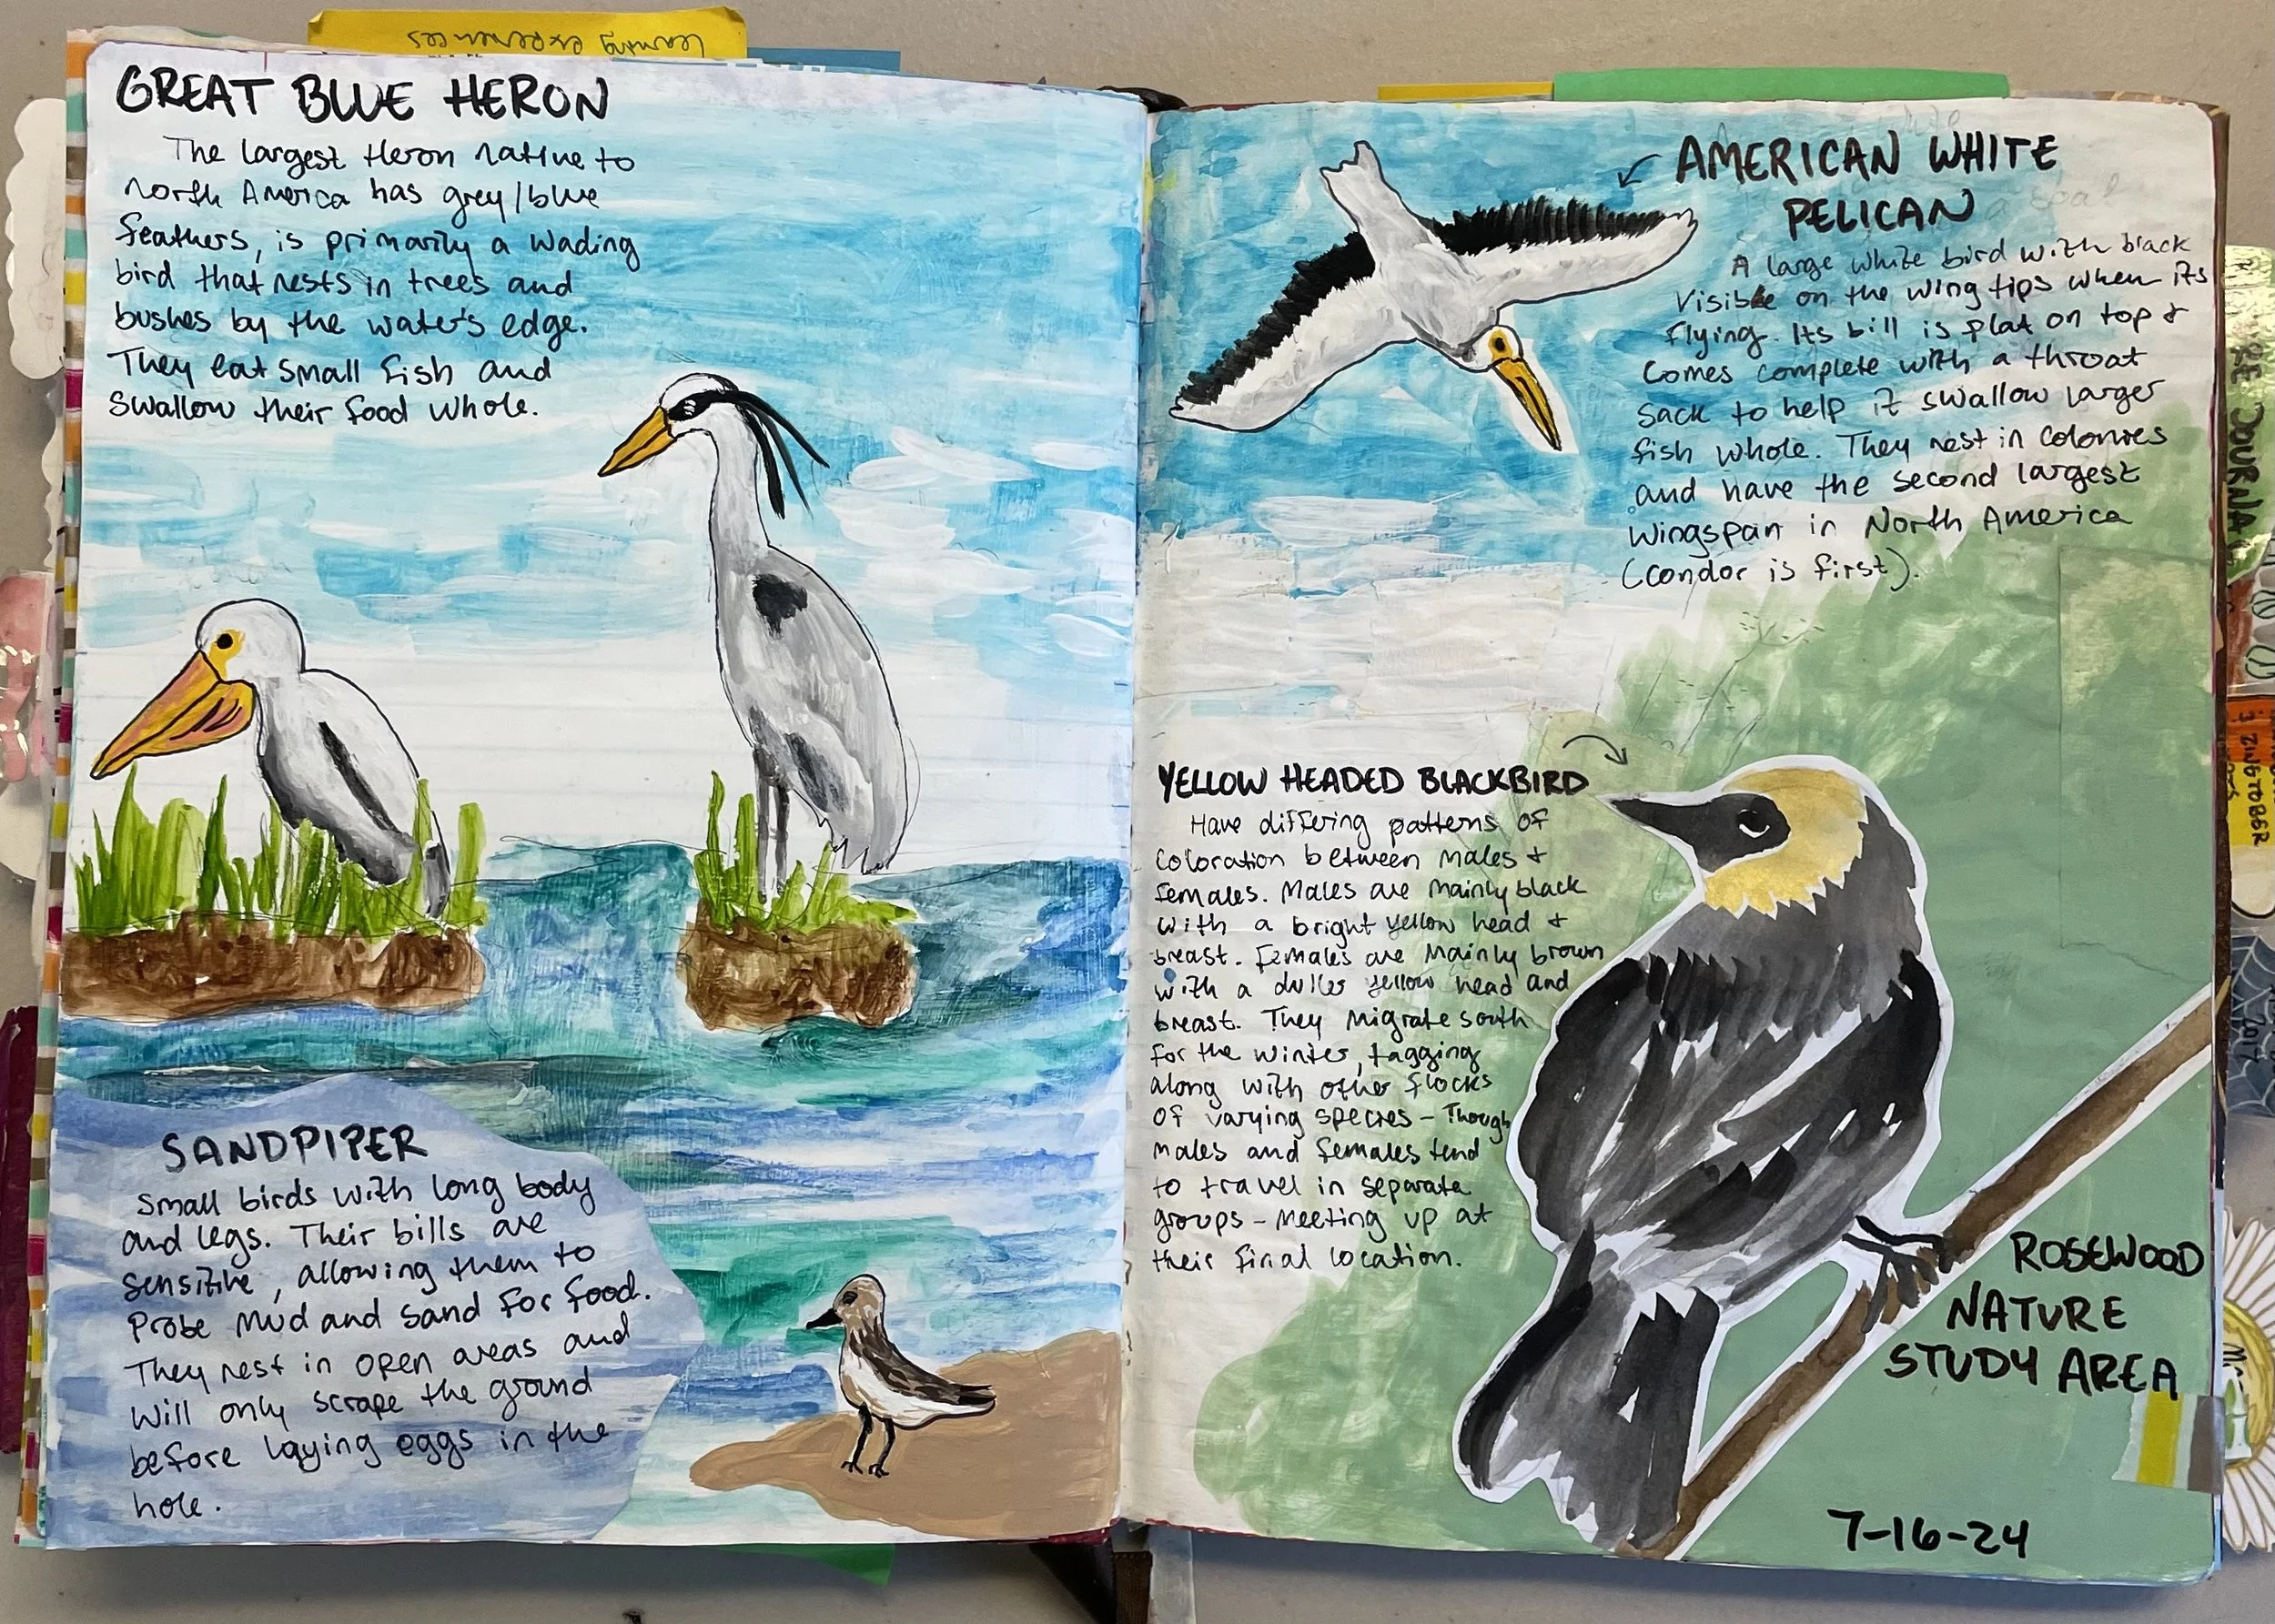 Learning experiences
GREAT BLUE HERON
The largest Heron native to
North America has grey/blue
feathers, is primarily a wading
bird that nests in trees and
bushes by the water's edge.
They eat small fish and
swallow their food whole.
SANDPIPER
Small birds with long body
and legs. Their bills are
sensitive, allowing them to
probe mud and sand for food.
They nest in open areas and
will only scrape the ground
before laying eggs in the
hole.
AMERICAN WHITE
PELICAN
A large white bird with black
visible on the wing tips when its
flying. Its bill is flat on top &
comes complete with a throat
sack to help it swallow larger
fish whole. They nest in colonies
and have the second largest
wingspan in North America
(condor is first).
YELLOW HEADED BLACKBIRD
Have differing patterns of
coloration between males &
females. Males are mainly black
with a bright yellow head &
breast. Females are mainly brown
with a duller yellow head and
breast. They migrate south
for the winter, tagging
along with other flocks
of varying species - Though
males and females tend
to travel in separate
groups - meeting up at
their final location.
ROSEWOOD
NATURE
STUDY AREA
7-16-24
JOURNA
2017